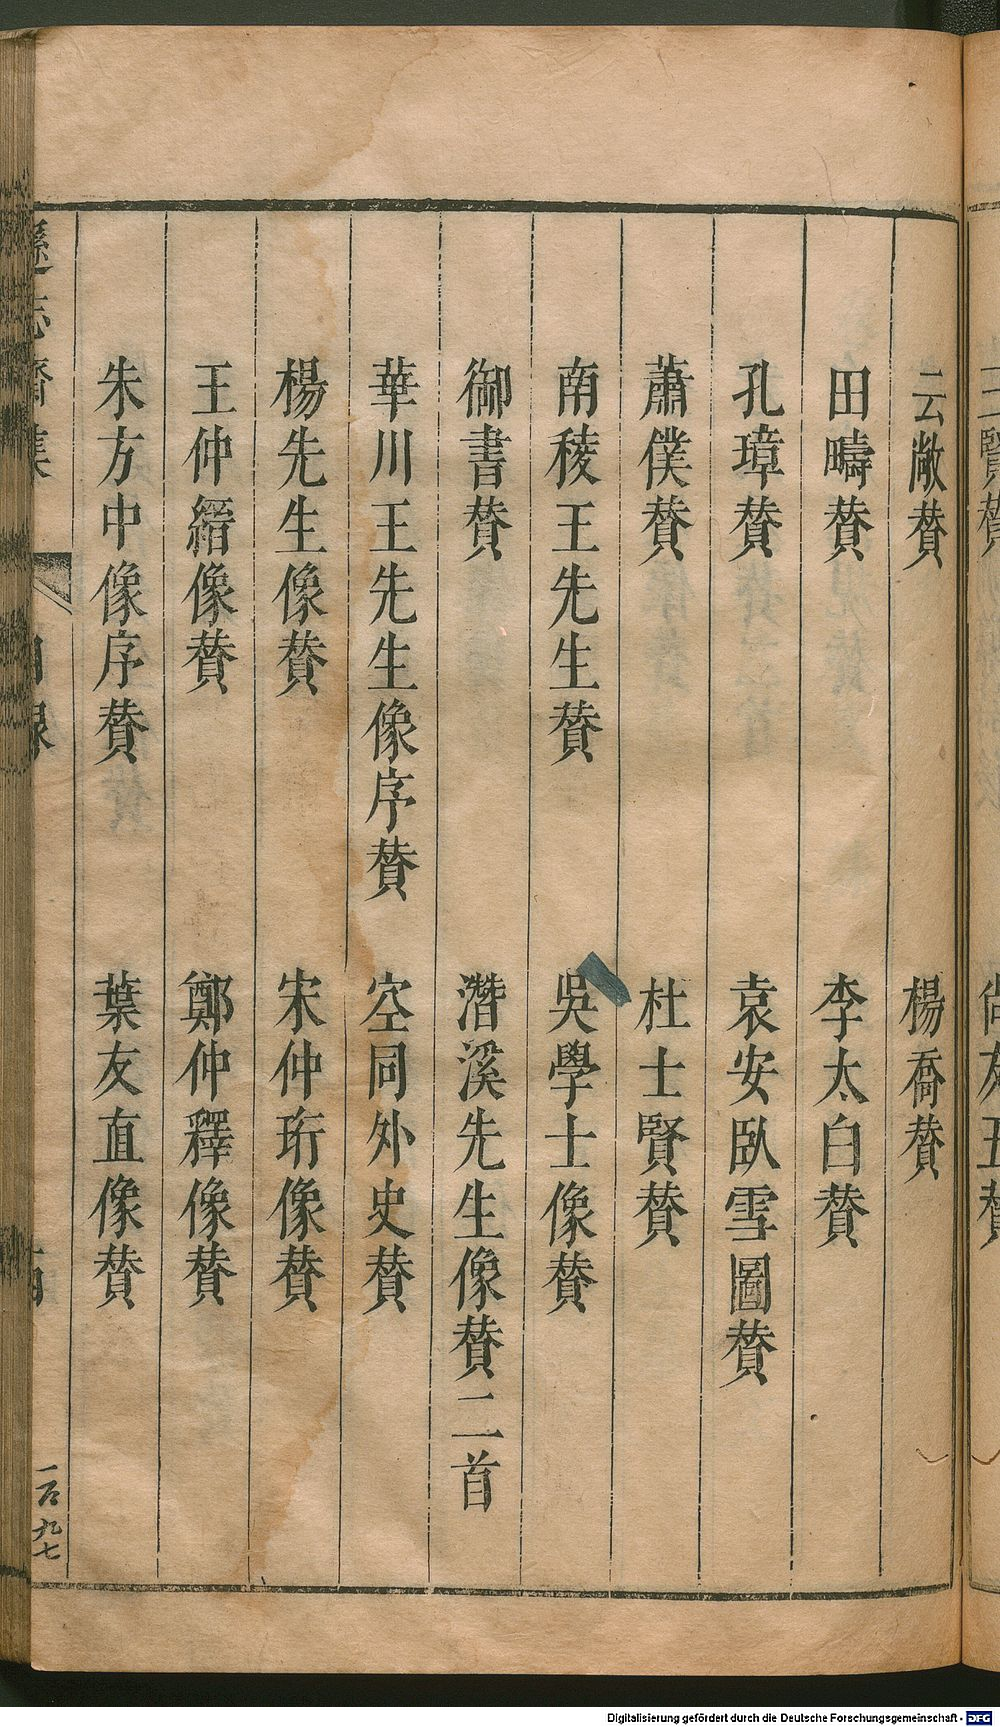 云敞賛　楊喬賛
田疇賛　李太白賛
孔璋賛　袁安臥雪圖賛
蕭僕賛　杜士賢賛
南稜王先生賛　吳學士像賛
御書賛　潛溪先生像賛二首
華川王先生像序賛　空同外史賛
楊先生像賛　宋仲珩像賛
王仲縉像賛　鄭仲釋像賛
朱方中像序賛　葉友直像賛
遜志齋集　目錄
Digitalisierung gefördert durch die Deutsche Forschungsgemeinschaft - DFG